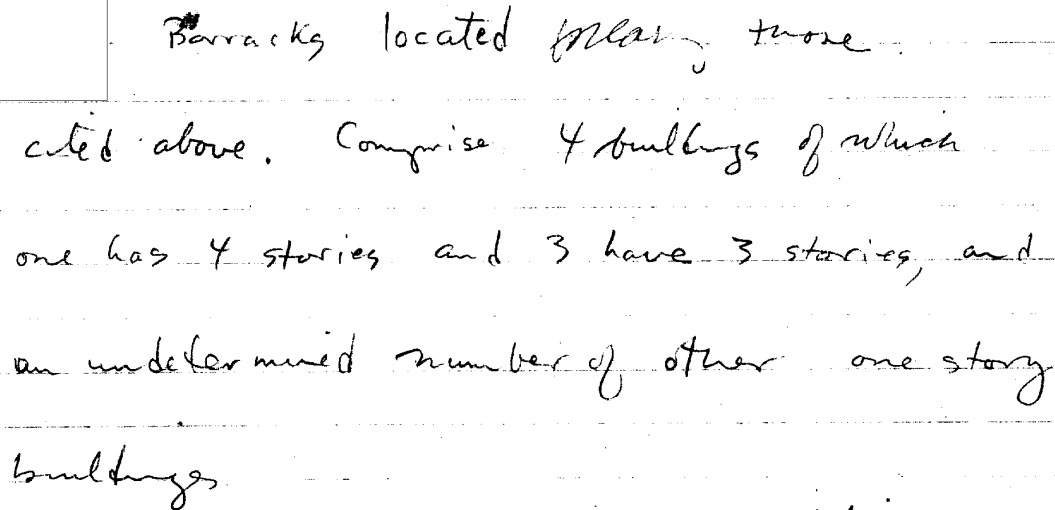 Barracks located near those
cited above. Comprise 4 buildings of which
one has 4 stories and 3 have 3 stories, and
an undetermined number of other one story
buildings